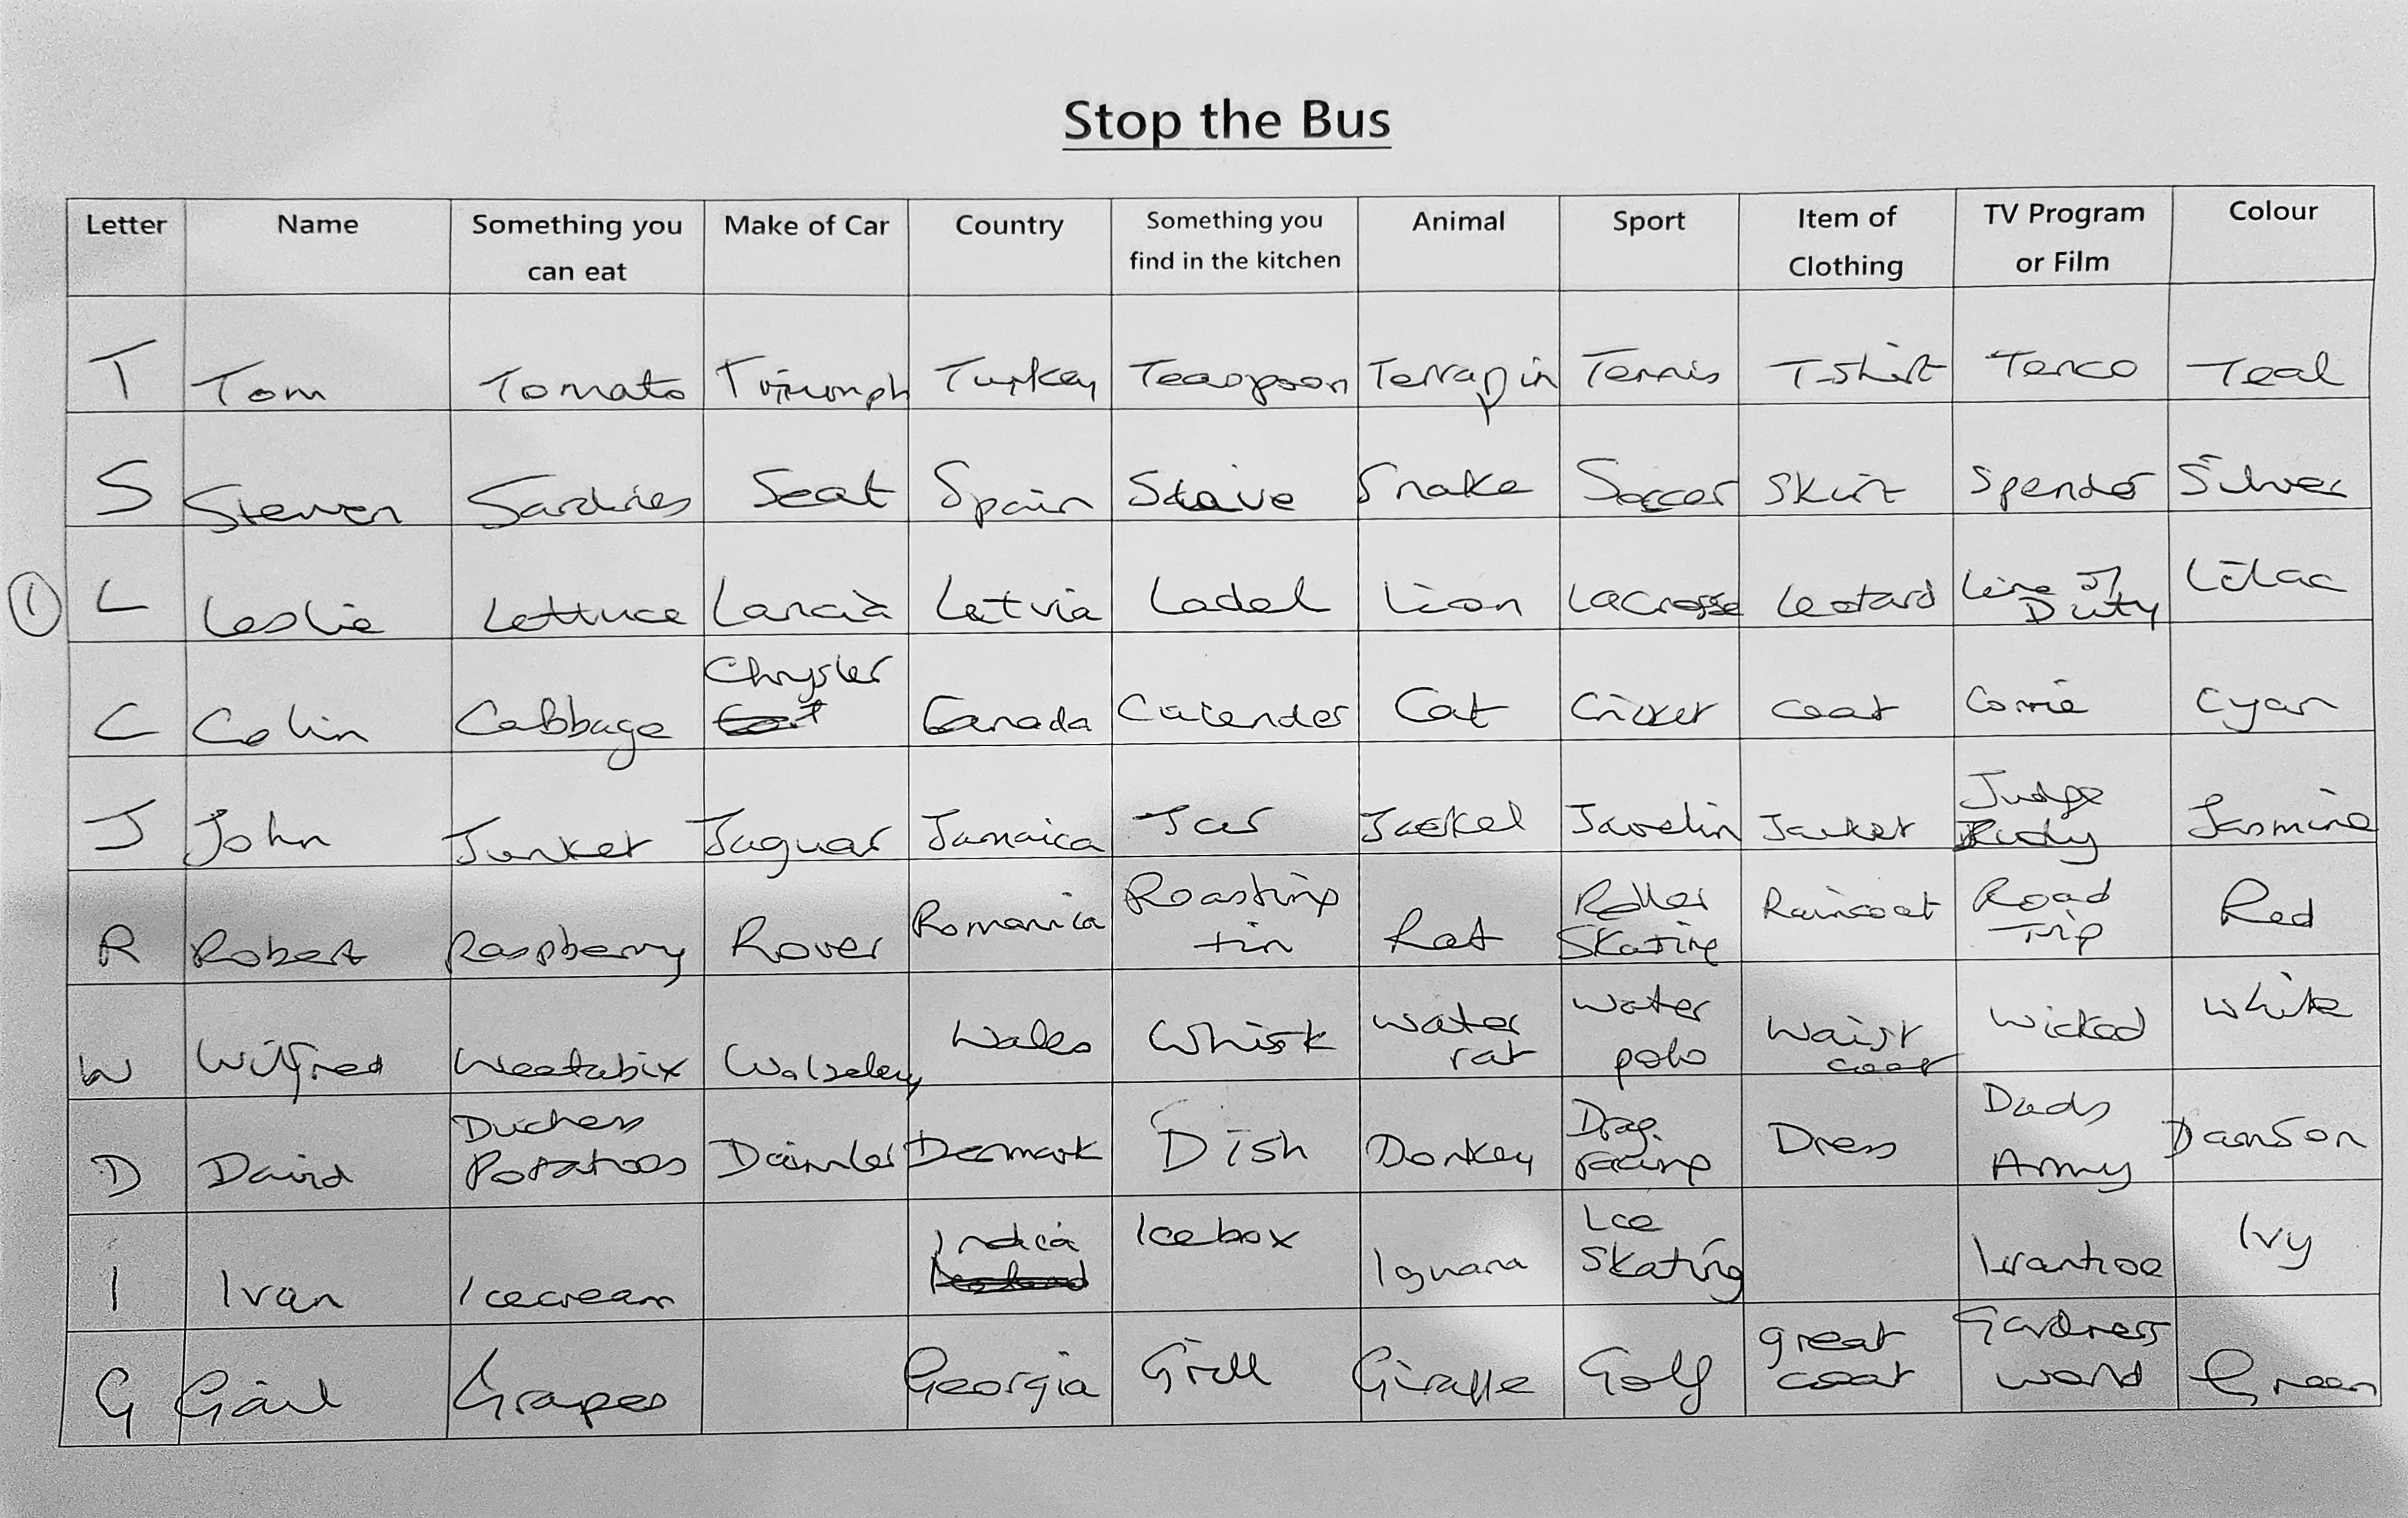 Stop the Bus
Letter Name Something you can eat Make of Car Country Something you find in the kitchen Animal Sport Item of Clothing TV Program or Film Colour
T Tom Tomato Triumph Turkey Teaspoon Terrapin Tennis T-Shirt Tenco Teal
S Steven Sardines Seat Spain Snake Soccer Skirt Spender Silver
① L Leslie Lettuce Lancia Latvia Ladel Lion Lacrosse Leotard Line of Duty Lilac
C Colin Cabbage Chrysler Canada Calender Cat Cricket coat Corrie Cyan
J John Junket Jaguar Jamaica Jar Jackel Javelin Jacket Judge Judy Jasmine
R Robert Raspberry Rover Romania Roasting tin Rat Roller Skating Raincoat Road Trip Red
W Wilfred Weetabix Wolseley Wales Whisk water rat water polo Waist coat Wicked white
D David Duchess Potatoes Daimler Denmark Dish Donkey Drag racing Dress Dads Army Damson
I Ivan Icecream India Icebox Iguana Ice Skating Ivanhoe Ivy
G Gail Grapes Georgia Grill Giraffe Golf great coat Gardners world Green